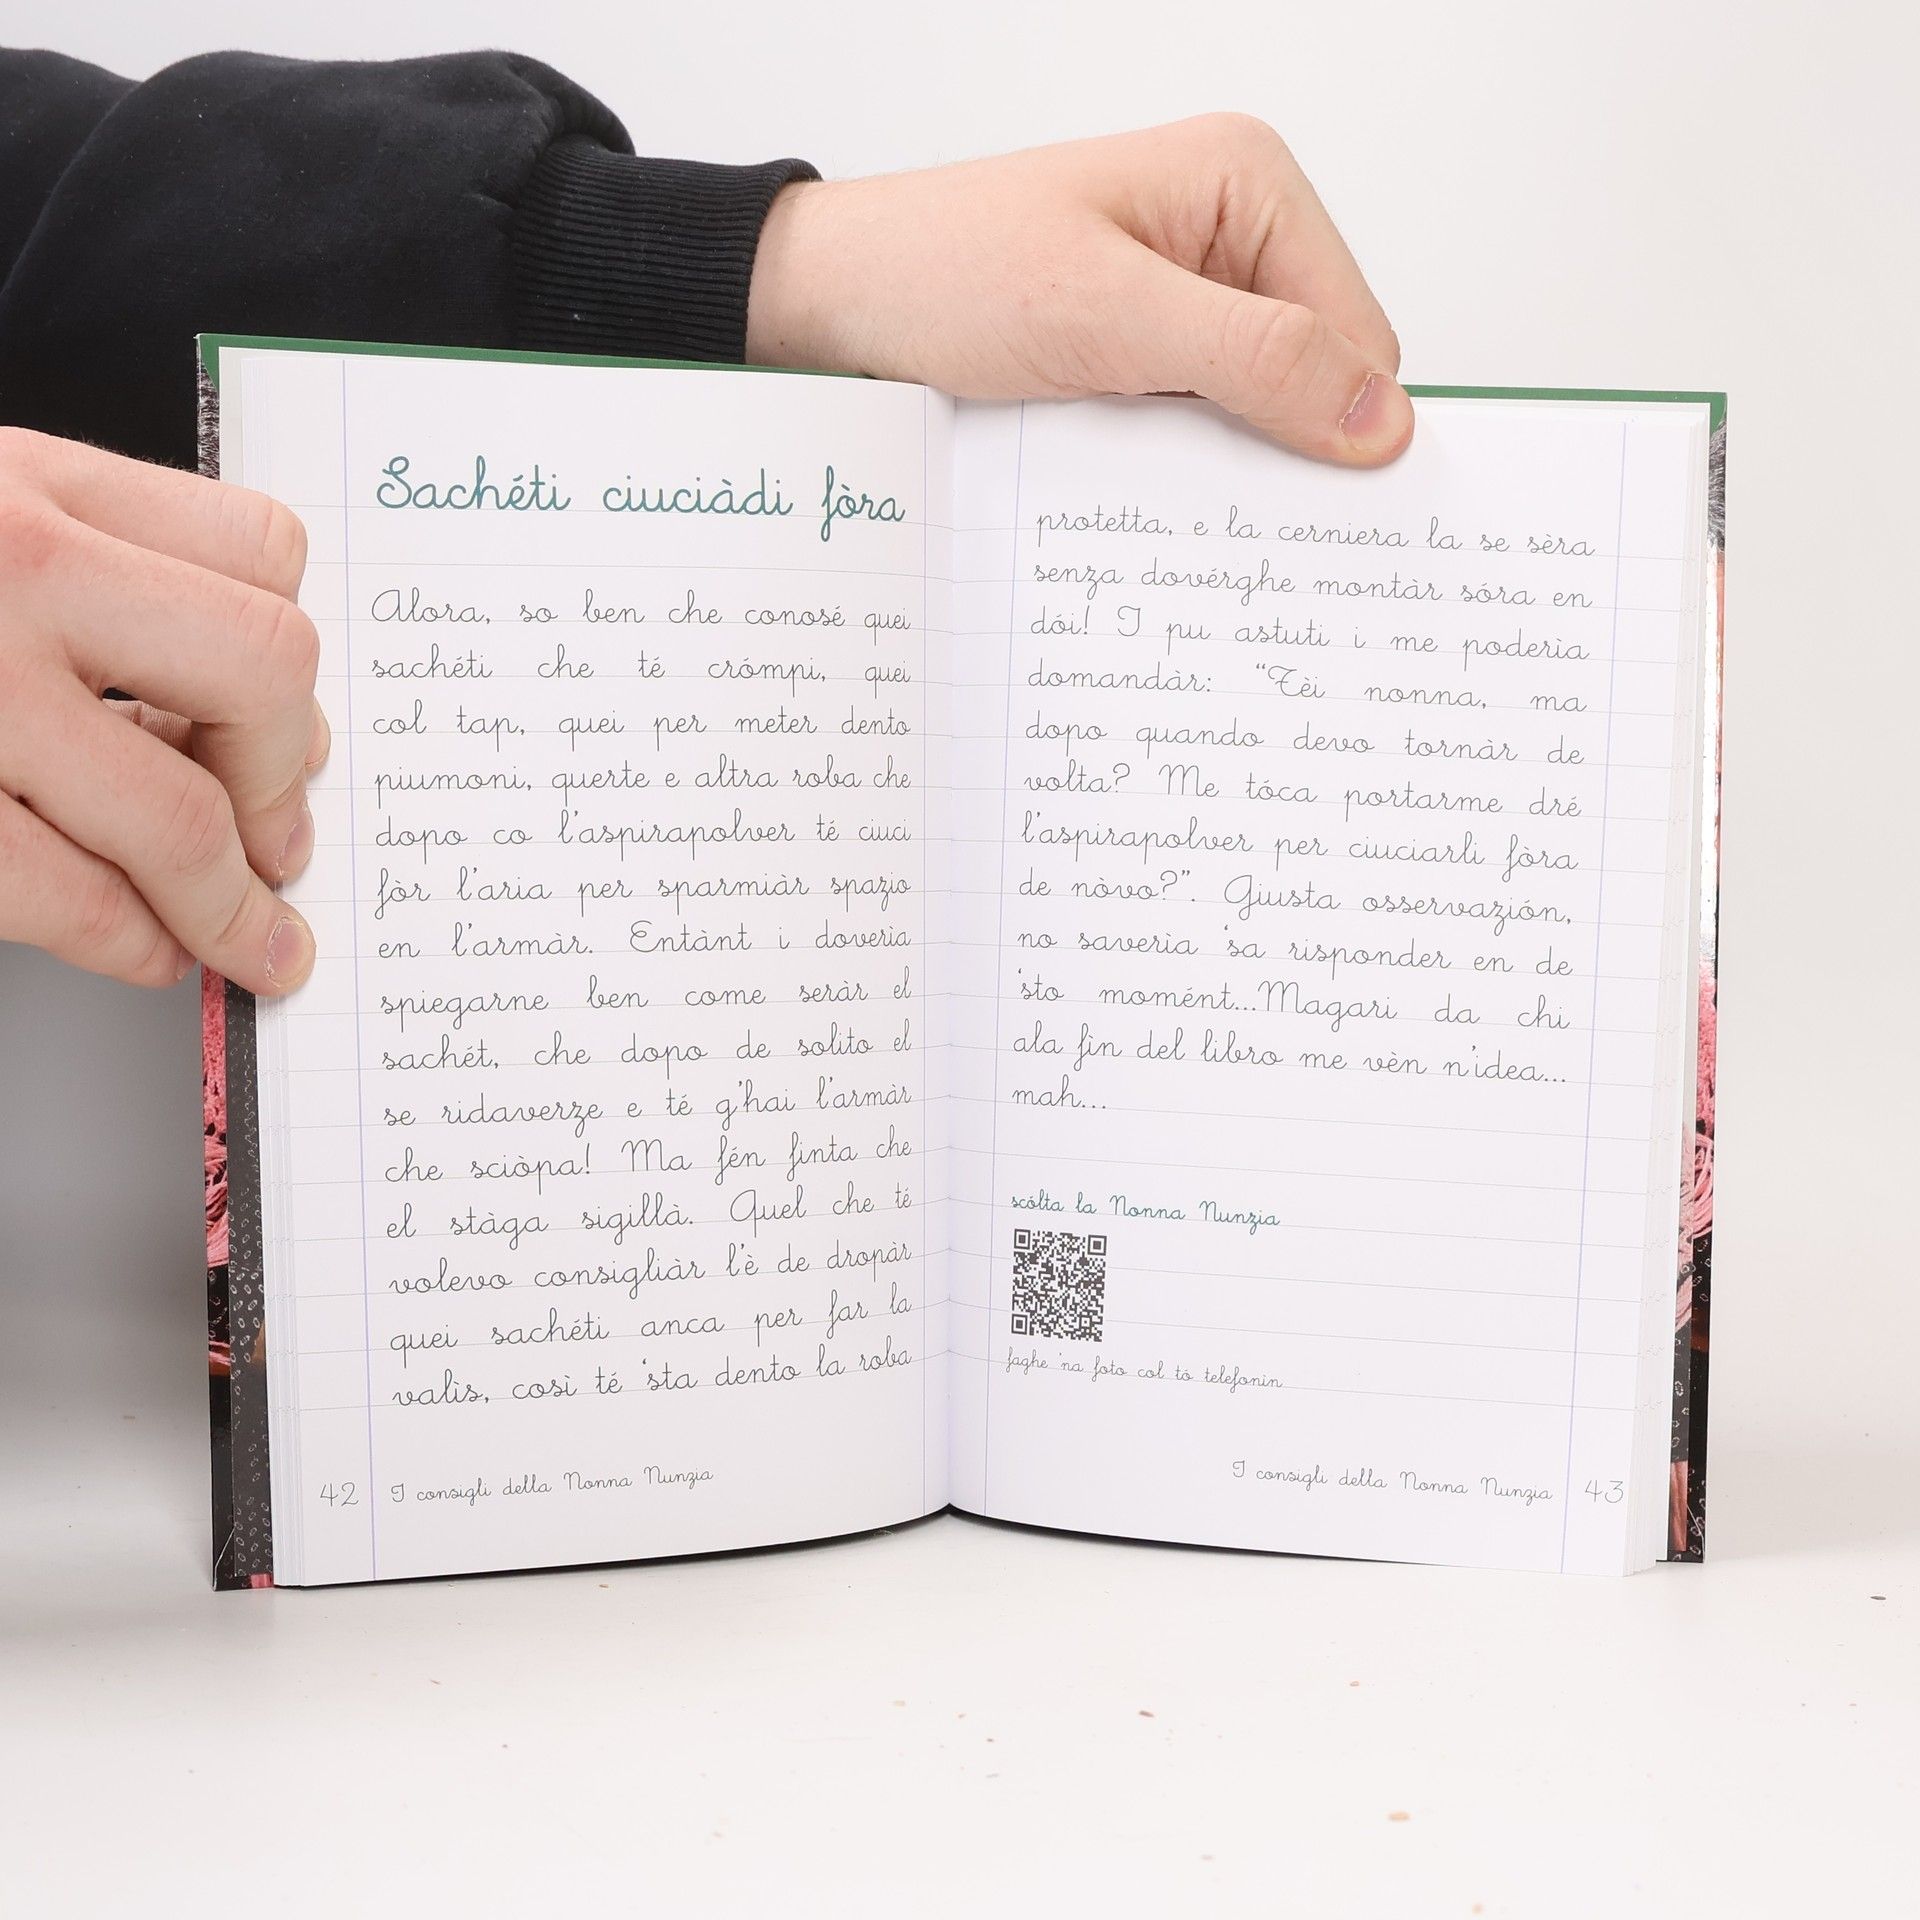 Sachéti ciuciàdi fòra
Alora, so ben che conosé quei
sachéti che té crómpi, quei
col tap, quei per meter dento
piumoni, querte e altra roba che
dopo co l'aspirapolver té ciuci
fòr l'aria per sparmiàr spazio
en l'armàr. Entànt i doverìa
spiegarne ben come seràr el
sachét, che dopo de solito el
se ridaverze e té g'hai l'armàr
che sciòpa! Ma fén finta che
el stàga sigillà. Quel che té
volevo consigliàr l'è de dropàr
quei sachéti anca per far la
valìs, così té 'sta dento la roba
42 I consigli della Nonna Nunzia
protetta, e la cerniera la se sèra
senza dovérghe montàr sóra en
dói! I pu astuti i me poderìa
domandàr: “Tèi nonna, ma
dopo quando devo tornàr de
volta? Me tóca portarme dré
l'aspirapolver per ciuciarli fòra
de nòvo?”. Giusta osservazión,
no saverìa 'sa risponder en de
'sto momént...Magari da chi
ala fin del libro me vèn n'idea...
mah...
scólta la Nonna Nunzia
faghe 'na foto col tó telefonin
I consigli della Nonna Nunzia 43